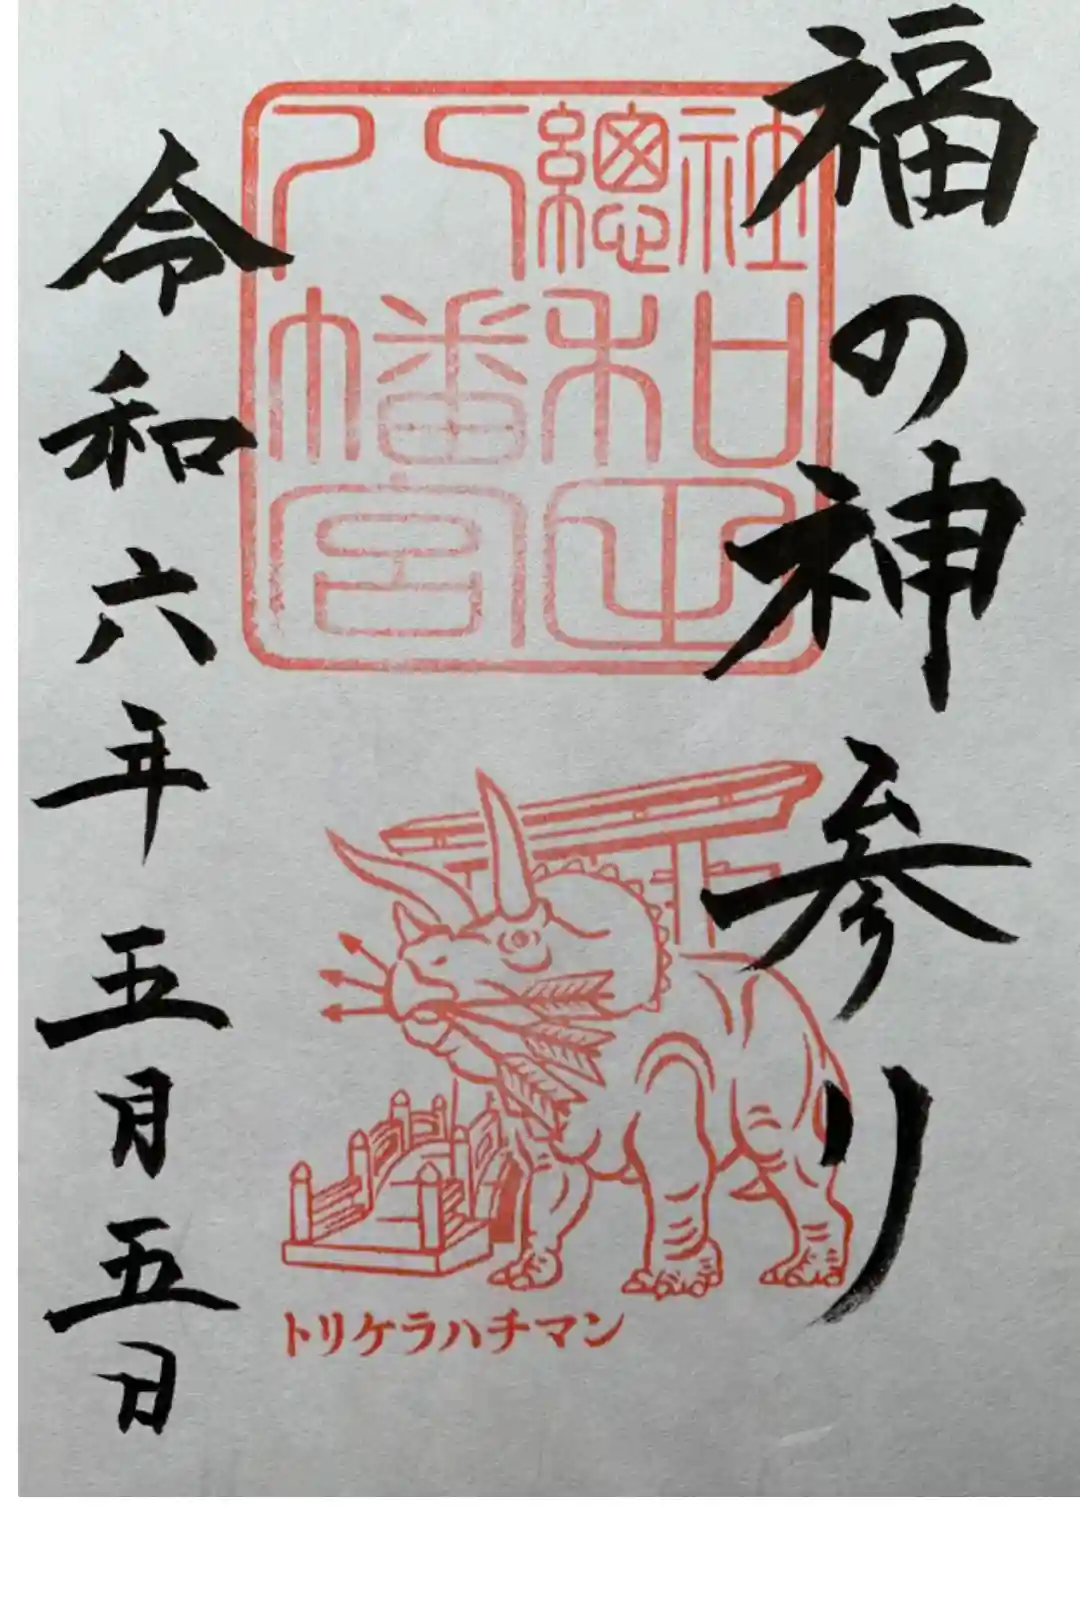 福の神参り
社
總
和田
八幡宮
令和六年五月五日
トリケラハチマン